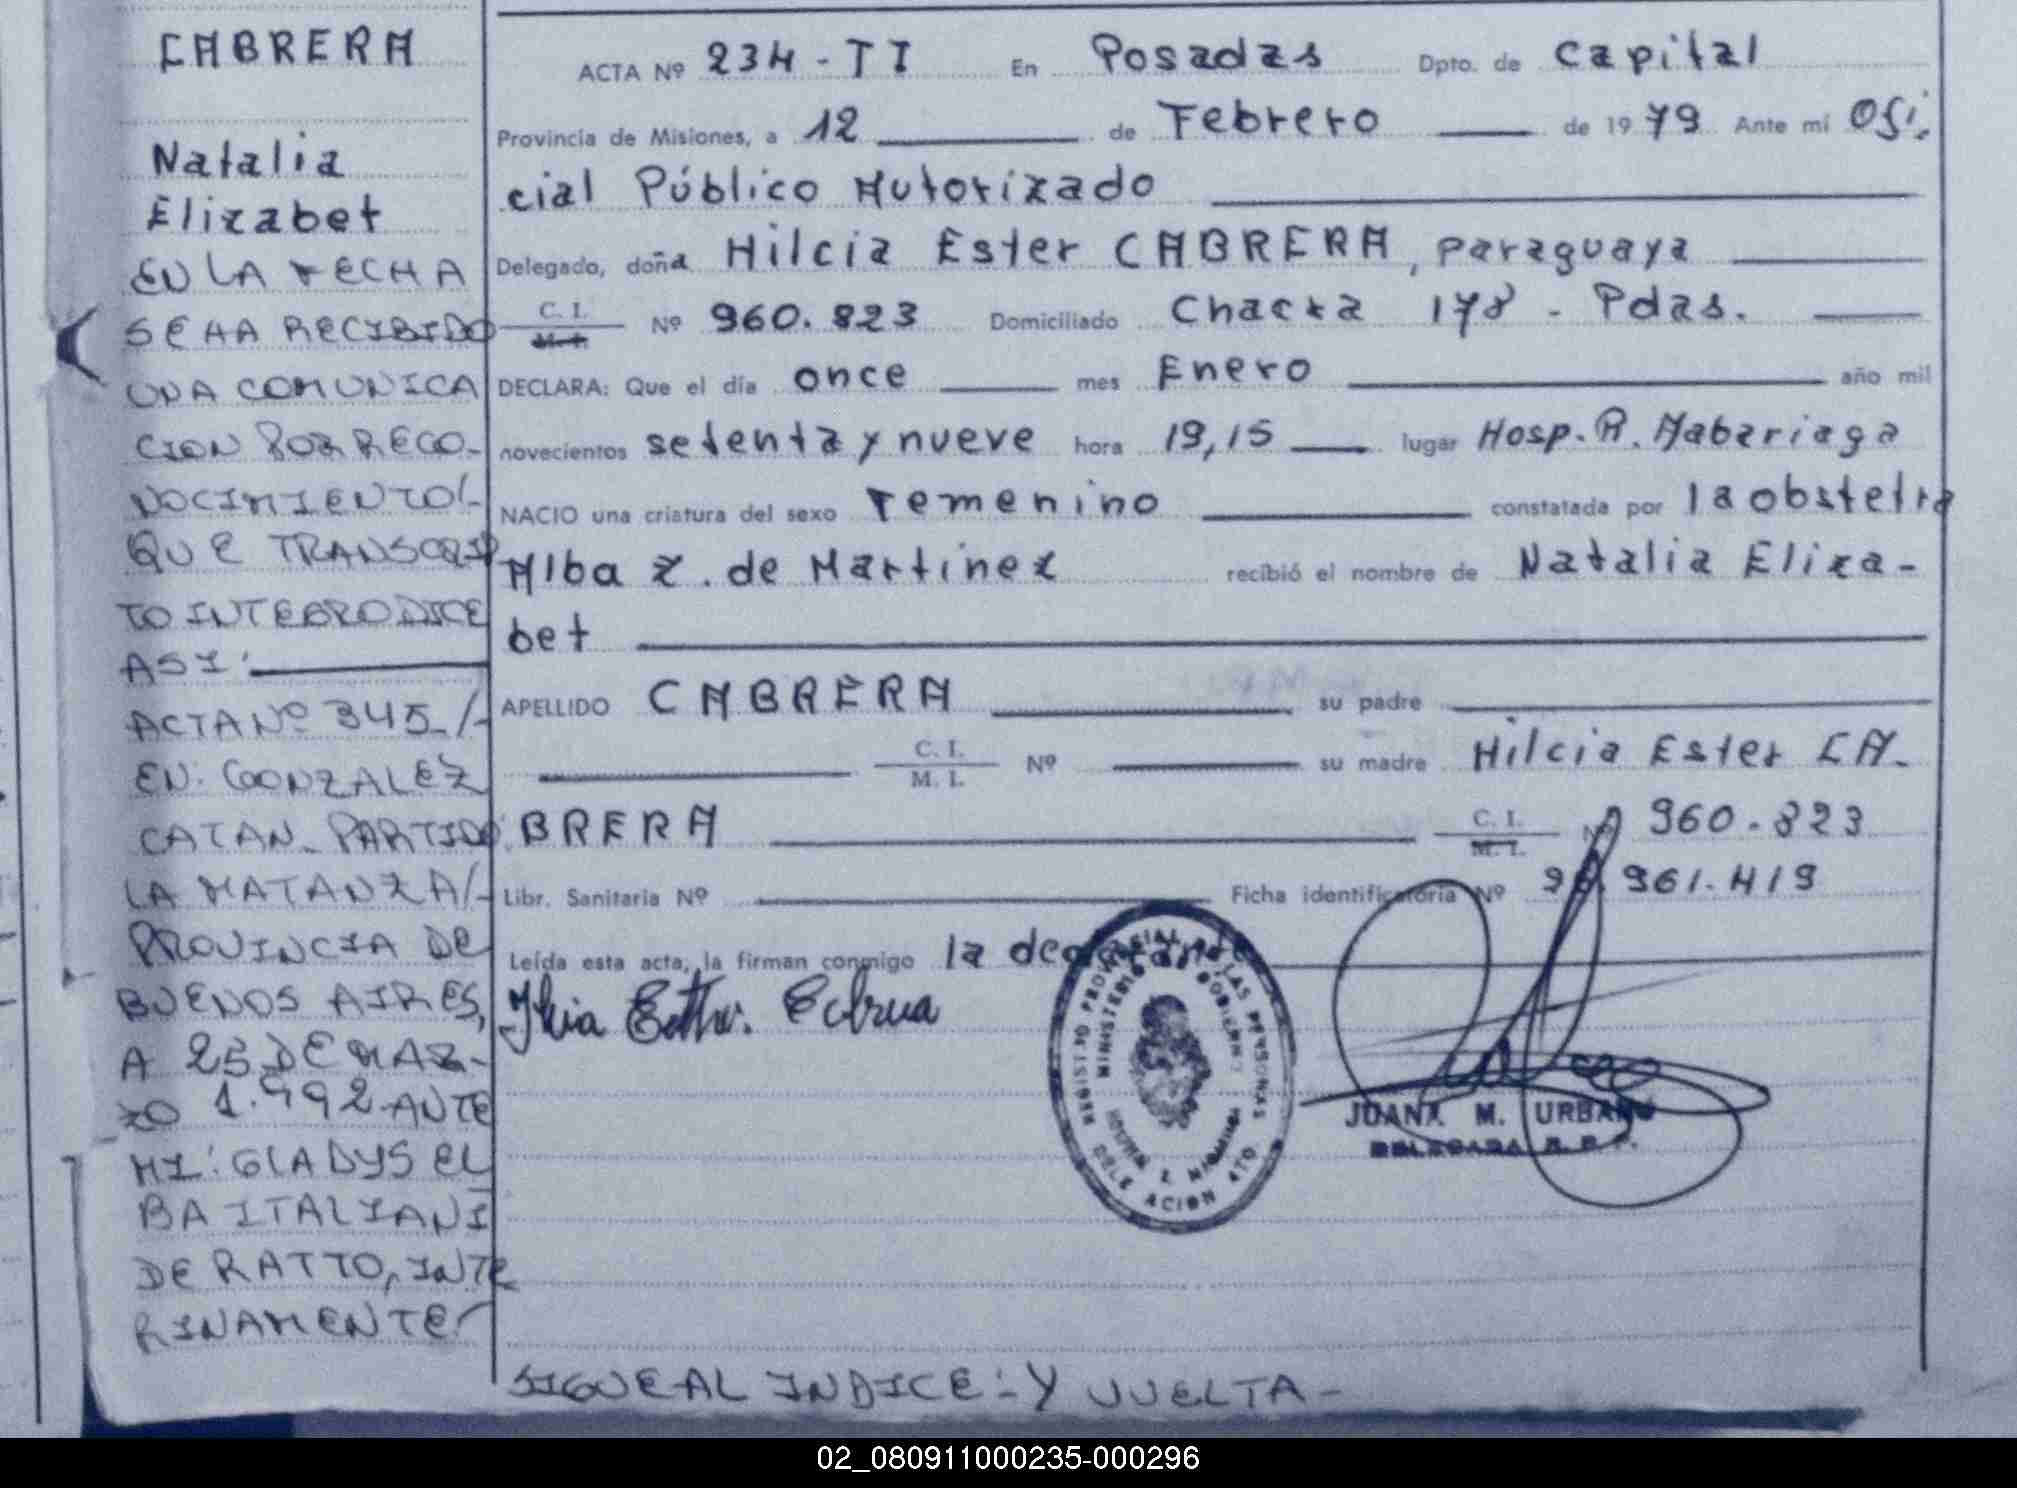 CABRERA
Natalia
Elizabet
EN LA FECHA
SE HA RECIBIDO
UNA COMUNICA
CION POR RECO-
NOCIMIENTO/-
QUE TRANSCRIP
TO INTEGRO DICE
ASI:
ACTA Nº 345_/-
EN. GONZALEZ
CATAN_ PARTIDO
LA MATANZA/-
PROVINCIA DE
BUENOS AIRES,
A 25 DE MAR-
ZO 1.992-ANTE
MI: GLADYS EL
BA ITALIANI
DE RATTO, INTE
RINAMENTE/
ACTA Nº 234 - TI En Posadas Dpto. de Capital
Provincia de Misiones, a 12 de Febrero de 1979 Ante mí Ofi.
cial Público Autorizado
Delegado, doña Hilcia Ester CABRERA, paraguaya
C. I. M. I. Nº 960.823 Domiciliado Chacra 178 - Pdas.
DECLARA: Que el día once mes Enero año mil
novecientos setenta y nueve hora 19,15 lugar Hosp. R. Mabariaga
NACIO una criatura del sexo Femenino constatada por la obstetra
Alba Z. de Martinez recibió el nombre de Natalia Eliza-
bet
APELLIDO CABRERA su padre
C. I. M. I. Nº su madre Hilcia Ester CA-
BRERA C. I. M. I. Nº 960.823
Libr. Sanitaria Nº Ficha identificatoria Nº 961.419
Leída esta acta, la firman conmigo la declarante
REGISTRO PROVINCIAL DE LAS PERSONAS
MINISTERIO DE GOBIERNO
DELEGACION 4TO
JUANA M. URBANO
DELEGADA R. P. P.
SIGUE AL INDICE:- Y VUELTA -
02_080911000235-000296